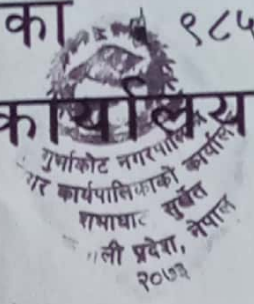 का ९८५
कार्यालय
गुर्भाकोट नगरपालिका
नगर कार्यपालिकाको कार्यालय
रामघाट सुर्खेत
ली प्रदेश, नेपाल
२०७३